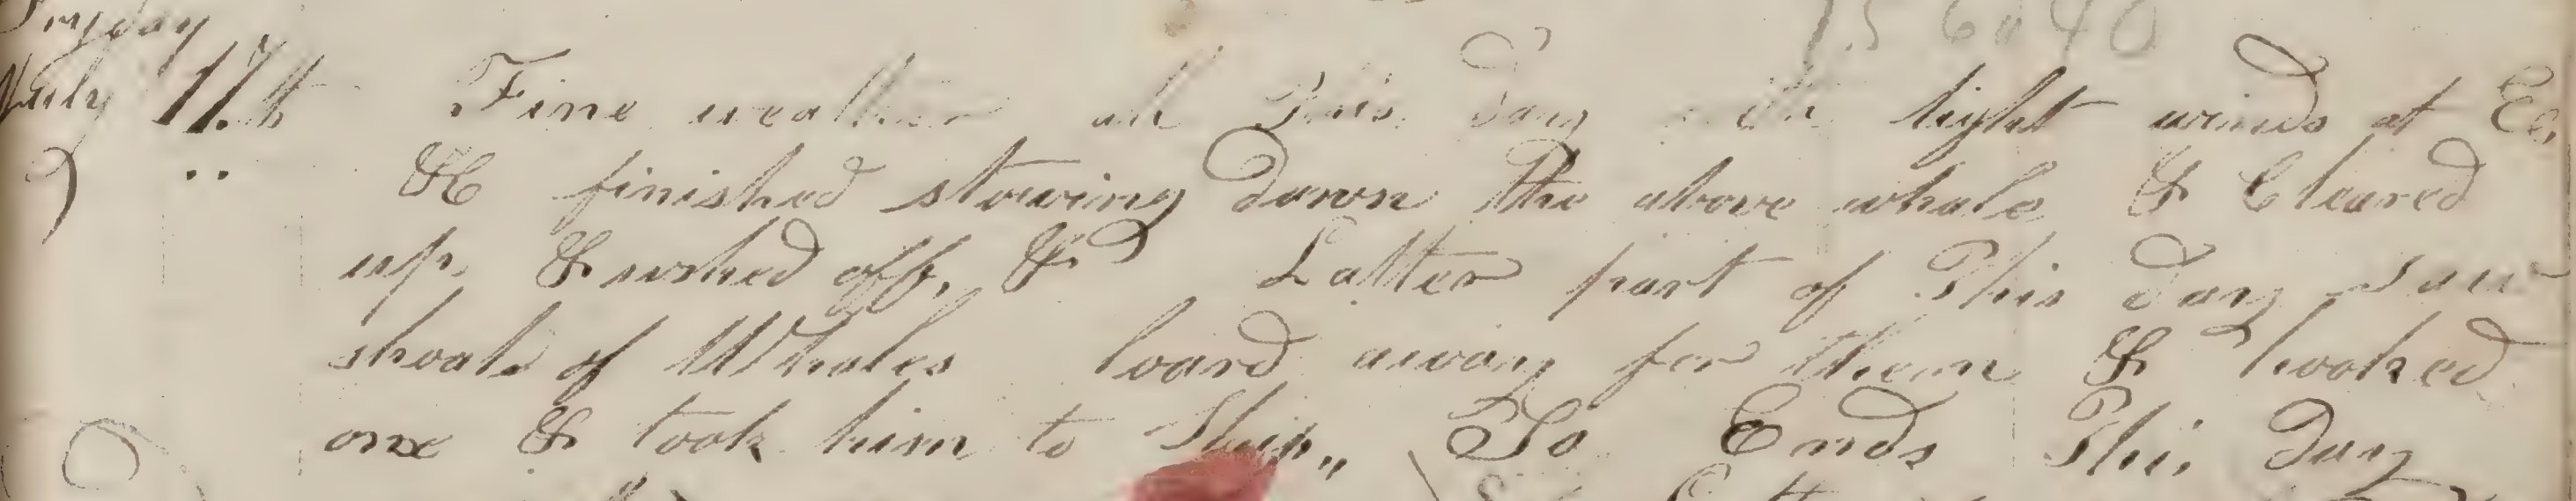 Fryday
July 17th Fine weather all This Day with light winds at E,
&C finished stowing Down The above whale & Cleared
up, & wshed off, & Latter part of This Day saw
shoals of Whales loard away for them & hooked
one & took him to Ship,, So Ends This Day